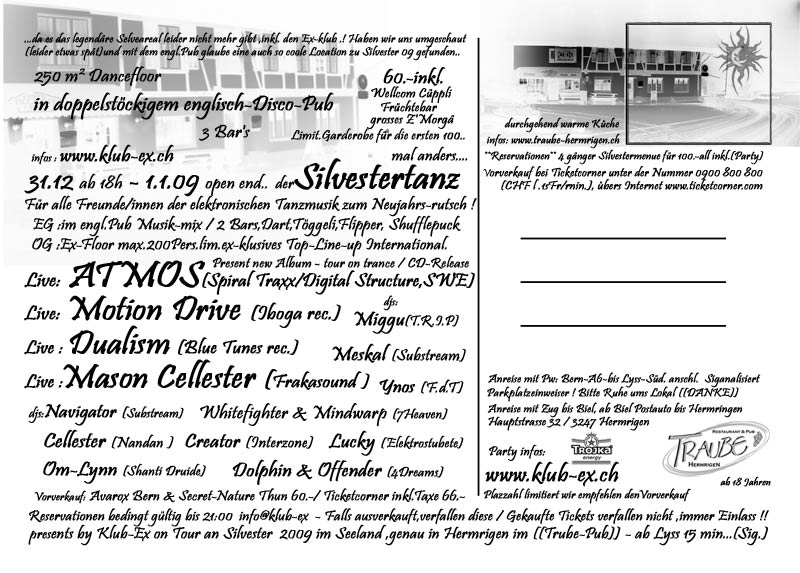 ...da es das legendäre Selveareal leider nicht mehr gibt ,inkl. den Ex-klub .! Haben wir uns umgeschaut
(leider etwas spät)und mit dem engl.Pub glaube eine auch so coole Location zu Silvester 09 gefunden..
250 m² Dancefloor
in doppelstöckigem englisch-Disco-Pub
3 Bar's
60.-inkl.
Wellcom Cüppli
Früchtebar
grosses Z'Morgä
Limit.Garderobe für die ersten 100..
infos : www.klub-ex.ch
mal anders....
31.12 ab 18h - 1.1.09 open end.. der Silvestertanz
Für alle Freunde/innen der elektronischen Tanzmusik zum Neujahrs-rutsch !
EG :im engl.Pub Musik-mix / 2 Bars,Dart,Töggeli,Flipper, Shufflepuck
OG :Ex-Floor max.200Pers.lim.ex-klusives Top-Line-up International.
Present new Album - tour on trance / CD-Release
Live: ATMOS (Spiral Traxx/Digital Structure,SWE)
Live: Motion Drive (Iboga rec.)
djs:
Miggu(T.R.I.P)
Live : Dualism (Blue Tunes rec.)
Meskal (Substream)
Live : Mason Cellester (Frakasound )
Ynos (F.d.T)
djs:Navigator (Substream) Whitefighter & Mindwarp (7Heaven)
Cellester (Nandan ) Creator (Interzone) Lucky (Elektrostubete)
Om-Lynn (Shanti Druide) Dolphin & Offender (4Dreams)
Vorverkauf: Avarox Bern & Secret-Nature Thun 60.-/ Ticketcorner inkl.Taxe 66.-
Reservationen bedingt gültig bis 21:00 info@klub-ex - Falls ausverkauft,verfallen diese / Gekaufte Tickets verfallen nicht ,immer Einlass !!
presents by Klub-Ex on Tour an Silvester 2009 im Seeland ,genau in Hermrigen im ((Trube-Pub)) - ab Lyss 15 min...(Sig.)
durchgehend warme Küche
infos: www.traube-hermrigen.ch
**Reservationen** 4 gänger Silvestermenue für 100.-all inkl.(Party)
Vorverkauf bei Ticketcorner unter der Nummer 0900 800 800
(CHF 1.19/min.), übers Internet www.ticketcorner.com
Anreise mit Pw: Bern-A6-bis Lyss-Süd. anschl. Siganalisiert
Parkplatzeinweiser ! Bitte Ruhe ums Lokal ((DANKE))
Anreise mit Zug bis Biel, ab Biel Postauto bis Hermringen
Hauptstrasse 32 / 3247 Hermrigen
Party infos:
TROJKA
energy
RESTAURANT & PUB
TRAUBE
HERMRIGEN
www.klub-ex.ch
ab 18 Jahren
Plazzahl limitiert wir empfehlen denVorverkauf